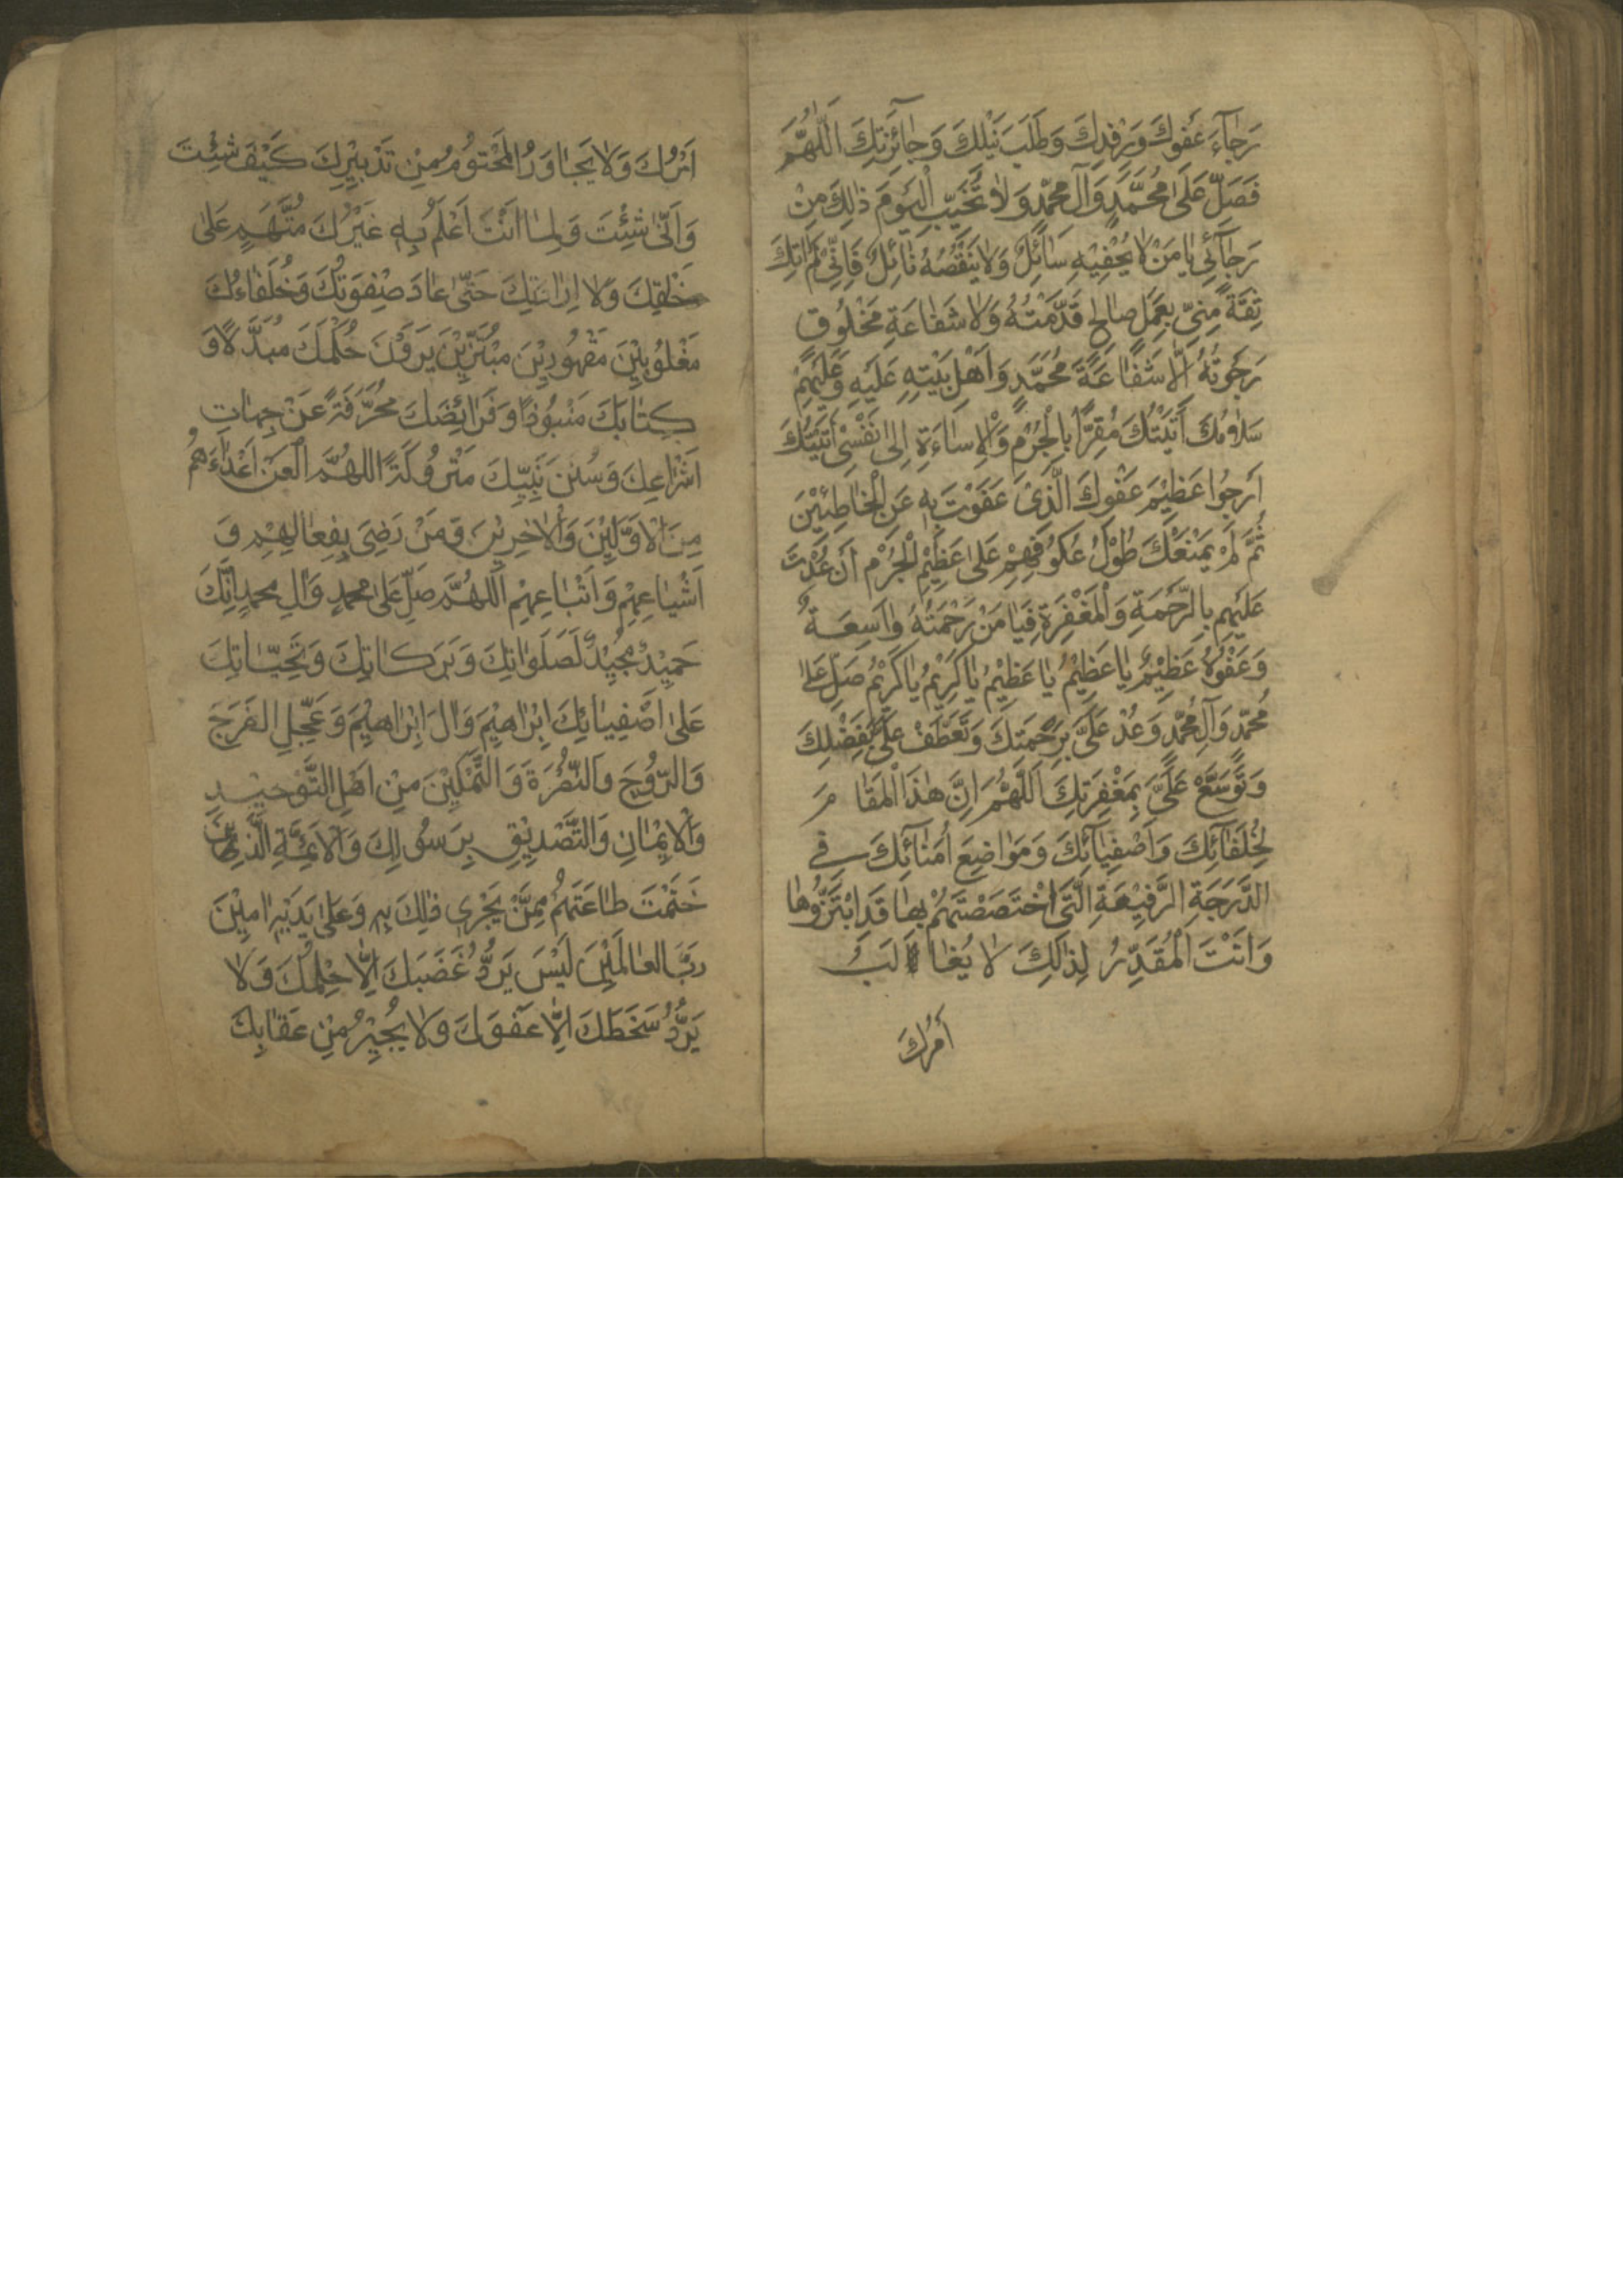 رَجٰآءَ عَفْوِكَ وَرِفْدِكَ وَطَلَبَ نَيْلِكَ وَجٰائِزَتِكَ اَللّٰهُمَّ
فَصَلِّ عَلٰى مُحَمَّدٍ وَآلِ مُحَمَّدٍ وَلاٰ تُخَيِّبِ الْيَوْمَ ذٰلِكَ مِنْ
رَجٰآئِي يٰا مَنْ لاٰ يُحْفِيْهِ سٰائِلٌ وَلاٰ يَنْقُصُهُ نٰائِلٌ فَاِنِّي لَمْ اٰتِكَ
ثِقَةً مِنِّي بِعَمَلٍ صٰالِحٍ قَدَّمْتُهُ وَلاٰ شَفٰاعَةِ مَخْلُوقٍ
رَجَوْتُهُ اِلّٰا شَفٰاعَةَ مُحَمَّدٍ وَاَهْلِ بَيْتِهِ عَلَيْهِ وَعَلَيْهِمْ
سَلاٰمُكَ اَتَيْتُكَ مُقِرًّا بِالْجُرْمِ وَالْاِسٰاءَةِ اِلٰى نَفْسِي اَتَيْتُكَ
اَرْجُوا عَظِيْمَ عَفْوِكَ الَّذِيْ عَفَوْتَ بِهِ عَنِ الْخٰاطِئِيْنَ
ثُمَّ لَمْ يَمْنَعْكَ طُوْلُ عُكُوفِهِمْ عَلٰى عَظِيْمِ الْجُرْمِ اَنْ عُدْتَ
عَلَيْهِمْ بِالرَّحْمَةِ وَالْمَغْفِرَةِ فَيٰا مَنْ رَحْمَتُهُ وٰاسِعَةٌ
وَعَفْوُهُ عَظِيْمٌ يٰا عَظِيْمُ يٰا عَظِيْمُ يٰا كَرِيْمُ يٰا كَرِيْمُ صَلِّ عَلٰى
مُحَمَّدٍ وَآلِ مُحَمَّدٍ وَعُدْ عَلَيَّ بِرَحْمَتِكَ وَتَعَطَّفْ عَلَيَّ بِفَضْلِكَ
وَتَوَسَّعْ عَلَيَّ بِمَغْفِرَتِكَ اَللّٰهُمَّ اِنَّ هٰذَا الْمَقٰا مَ
لِخُلَفٰائِكَ وَاَصْفِيٰآئِكَ وَمَوٰاضِعَ اُمَنٰآئِكَ فِي
الدَّرَجَةِ الرَّفِيْعَةِ الَّتِي اخْتَصَصْتَهُمْ بِهٰا قَدِ ابْتَزُّوهٰا
وَاَنْتَ الْمُقَدِّرُ لِذٰلِكَ لاٰ يُغٰا لَبُ
اَمْرُكَ
اَمْرُكَ وَلاٰ يُجٰاوَزُ الْمَحْتُومُ مِنْ تَدْبِيْرِكَ كَيْفَ شِئْتَ
وَاَنّٰى شِئْتَ وَلِمٰا اَنْتَ اَعْلَمُ بِهِ غَيْرُكَ مُتَّهَمٍ عَلٰى
خَلْقِكَ وَلاٰ اِرٰادَتِكَ حَتّٰى عٰادَ صِفْوَتُكَ وَخُلَفٰاءُكَ
مَغْلُوبِيْنَ مَقْهُورِيْنَ مُبْتَزِّيْنَ يَرَوْنَ حُكْمَكَ مُبَدَّلًا وَ
كِتٰابَكَ مَنْبُوذًا وَفَرٰائِضَكَ مُحَرَّفَةً عَنْ جِهٰاتِ
اَشْرٰاعِكَ وَسُنَنَ نَبِيِّكَ مَتْرُوكَةً اللهُمَّ الْعَنْ اَعْدٰاءَهُمْ
مِنَ الْاَوَّلِيْنَ وَالْاٰخِرِيْنَ وَمَنْ رَضِيَ بِفِعٰالِهِمْ وَ
اَشْيٰاعِهِمْ وَاَتْبٰاعِهِمْ اَللهُمَّ صَلِّ عَلٰى مُحَمَّدٍ وَاٰلِ مُحَمَّدٍ اِنَّكَ
حَمِيْدٌ مَجِيْدٌ لَصَلَوٰاتِكَ وَبَرَكٰاتِكَ وَتَحِيّٰاتِكَ
عَلٰى اَصْفِيٰائِكَ اِبْرٰاهِيْمَ وَاٰلَ اِبْرٰاهِيْمَ وَعَجِّلِ الفَرَجَ
وَالرَّوْحَ وَالنُّصْرَةَ وَالتَّمْكِيْنَ مِنْ اَهْلِ التَّوْحِيْدِ
وَالْاِيْمٰانِ وَالتَّصْدِيْقِ بِرَسُولِكَ وَالْاَئِمَّةِ الَّذِيْنَ
حَتَمْتَ طٰاعَتَهُمْ مِمَّنْ يَجْرِي ذٰلِكَ بِهِ وَعَلٰى يَدَيْهِ اٰمِيْنَ
رَبَّ العٰالَمِيْنَ لَيْسَ يَرُدُّ غَضَبَكَ اِلّٰا حِلْمُكَ وَلاٰ
يَرُدُّ سَخَطَكَ اِلّٰا عَفْوُكَ وَلاٰ يُجِيْرُ مِنْ عِقٰابِكَ